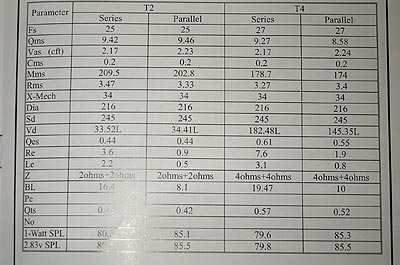 Parameter T2 T4
Series Parallel Series Parallel
Fs 25 25 27 27
Qms 9.42 9.46 9.27 8.58
Vas (cft) 2.17 2.23 2.17 2.24
Cms 0.2 0.2 0.2 0.2
Mms 209.5 202.8 178.7 174
Rms 3.47 3.33 3.27 3.4
X-Mech 34 34 34 34
Dia 216 216 216 216
Sd 245 245 245 245
Vd 33.52L 34.41L 182.48L 145.35L
Qes 0.44 0.44 0.61 0.55
Re 3.6 0.9 7.6 1.9
Le 2.2 0.5 3.1 0.8
Z 2ohms+2ohms 2ohms+2ohms 4ohms+4ohms 4ohms+4ohms
BL 16.4 8.1 19.47 10
Pe
Qts 0.42 0.57 0.52
No
1-Watt SPL 85.1 79.6 85.3
2.83v SPL 85.5 79.8 85.5